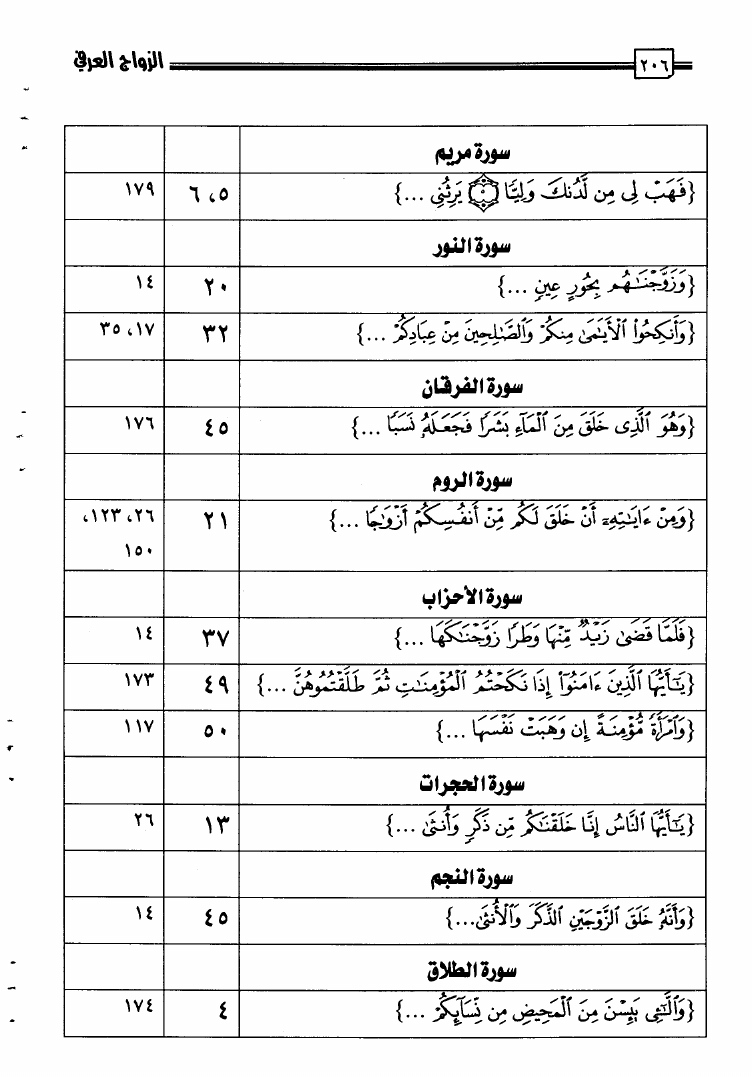 ٢٠٦ الزواج العرفي
سورة مريم
{فَهَبْ لِى مِن لَّدُنكَ وَلِيًّا ۝ يَرِثُنِى ...} ٥، ٦ ١٧٩
سورة النور
{وَزَوَّجْنَٰهُم بِحُورٍ عِينٍ ...} ٢٠ ١٤
{وَأَنكِحُوا۟ ٱلْأَيَٰمَىٰ مِنكُمْ وَٱلصَّٰلِحِينَ مِنْ عِبَادِكُمْ ...} ٣٢ ١٧، ٣٥
سورة الفرقان
{وَهُوَ ٱلَّذِى خَلَقَ مِنَ ٱلْمَآءِ بَشَرًا فَجَعَلَهُۥ نَسَبًا ...} ٤٥ ١٧٦
سورة الروم
{وَمِنْ ءَايَٰتِهِۦٓ أَنْ خَلَقَ لَكُم مِّنْ أَنفُسِكُمْ أَزْوَٰجًا ...} ٢١ ٢٦، ١٢٣،
١٥٠
سورة الأحزاب
{فَلَمَّا قَضَىٰ زَيْدٌ مِّنْهَا وَطَرًا زَوَّجْنَٰكَهَا ...} ٣٧ ١٤
{يَٰٓأَيُّهَا ٱلَّذِينَ ءَامَنُوٓا۟ إِذَا نَكَحْتُمُ ٱلْمُؤْمِنَٰتِ ثُمَّ طَلَّقْتُمُوهُنَّ ...} ٤٩ ١٧٣
{وَٱمْرَأَةً مُّؤْمِنَةً إِن وَهَبَتْ نَفْسَهَا ...} ٥٠ ١١٧
سورة الحجرات
{يَٰٓأَيُّهَا ٱلنَّاسُ إِنَّا خَلَقْنَٰكُم مِّن ذَكَرٍ وَأُنثَىٰ ...} ١٣ ٢٦
سورة النجم
{وَأَنَّهُۥ خَلَقَ ٱلزَّوْجَيْنِ ٱلذَّكَرَ وَٱلْأُنثَىٰ...} ٤٥ ١٤
سورة الطلاق
{وَٱلَّٰٓـِٔى يَئِسْنَ مِنَ ٱلْمَحِيضِ مِن نِّسَآئِكُمْ ...} ٤ ١٧٤